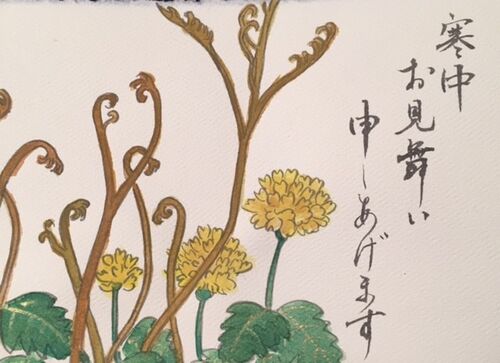 寒中
お見舞い
申しあげます